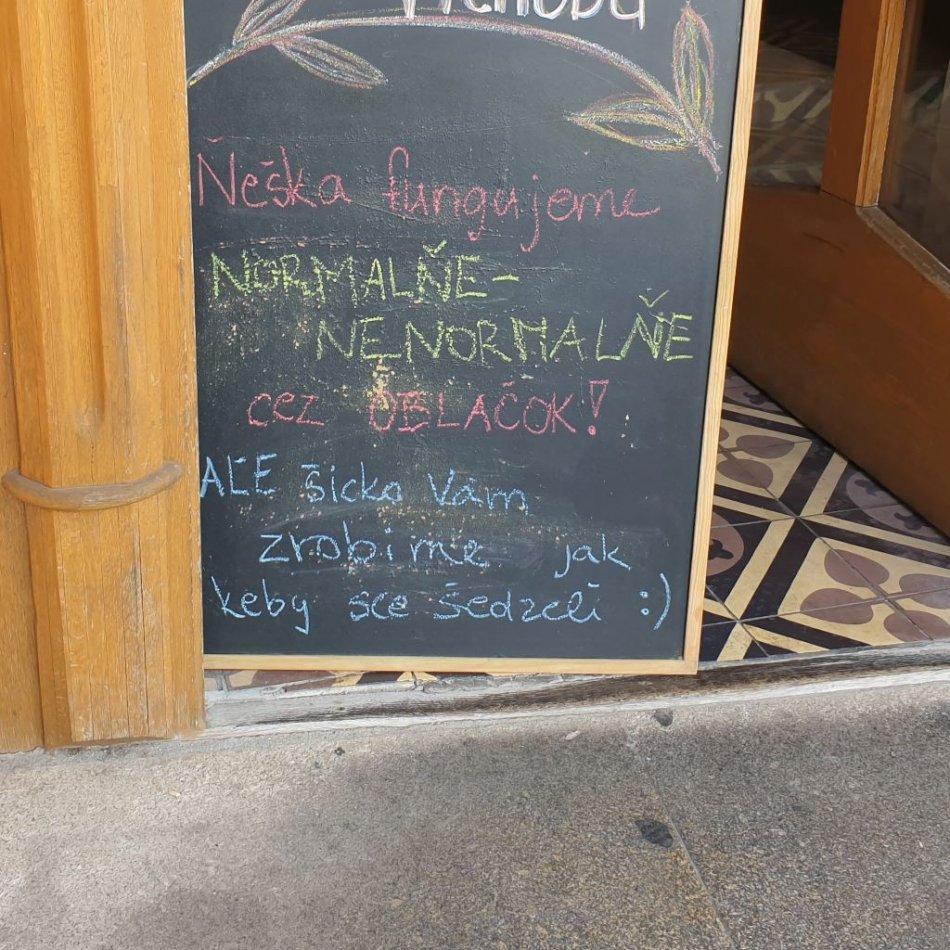 Ňeška fungujeme
NORMALŇE-
NENORMALŇE
cez OBLAČOK!
AĽE šicko Vám
zrobime jak
keby sce šedzeľi :)